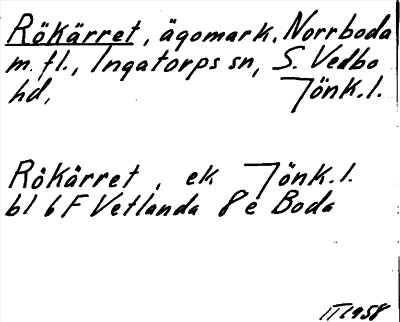 Rökärret, ägomark, Norrboda
m. fl., Ingatorps sn, S. Vedbo
hd, Jönk. l.
Rökärret, ek Jönk. l.
bl 6 F Vetlanda 8e Boda
IT 1958